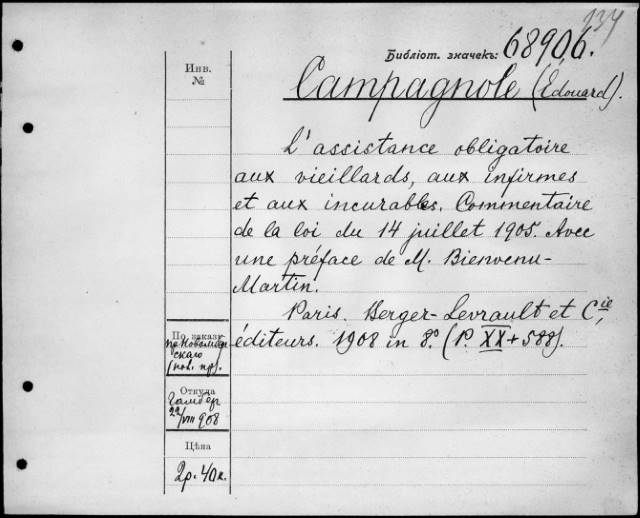 Библiот. значекъ: 68906.
Инв.
№
Campagnole (Édouard).
L'assistance obligatoire
aux vieillards, aux infirmes
et aux incurables. Commentaire
de la loi du 14 juillet 1905. Avec
une préface de M. Bienvenu-
Martin.
Paris. Berger-Levrault et Cie,
éditeurs. 1908 in 8º. (P. XX + 588).
По заказу
скаго
Откуда
22/VIII 908
Цѣна
2р. 40к.